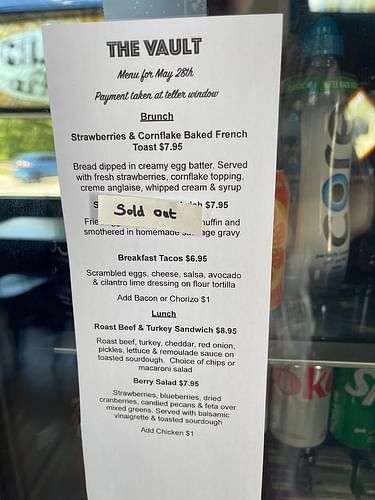 THE VAULT
Menu for May 28th
Payment taken at teller window
Brunch
Strawberries & Cornflake Baked French
Toast $7.95
Bread dipped in creamy egg batter. Served
with fresh strawberries, cornflake topping,
creme anglaise, whipped cream & syrup
$7.95
Sold out
and
smothered in homemade gravy
Breakfast Tacos $6.95
Scrambled eggs, cheese, salsa, avocado
& cilantro lime dressing on flour tortilla
Add Bacon or Chorizo $1
Lunch
Roast Beef & Turkey Sandwich $8.95
Roast beef, turkey, cheddar, red onion,
pickles, lettuce & remoulade sauce on
toasted sourdough. Choice of chips or
macaroni salad
Berry Salad $7.95
Strawberries, blueberries, dried
cranberries, candied pecans & feta over
mixed greens. Served with balsamic
vinaigrette & toasted sourdough
Add Chicken $1
core